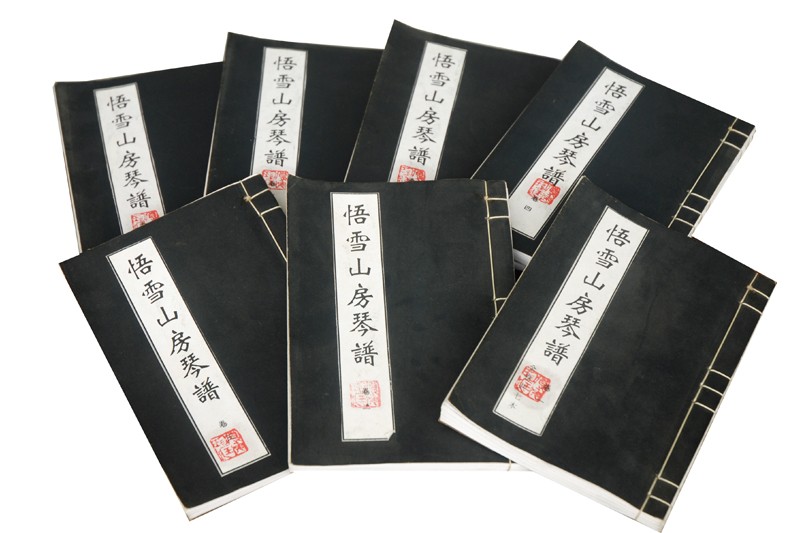 悟雪山房琴譜
悟雪山房琴譜
悟雪山房琴譜
悟雪山房琴譜
卷四
悟雪山房琴譜
卷
悟雪山房琴譜
卷
悟雪山房琴譜